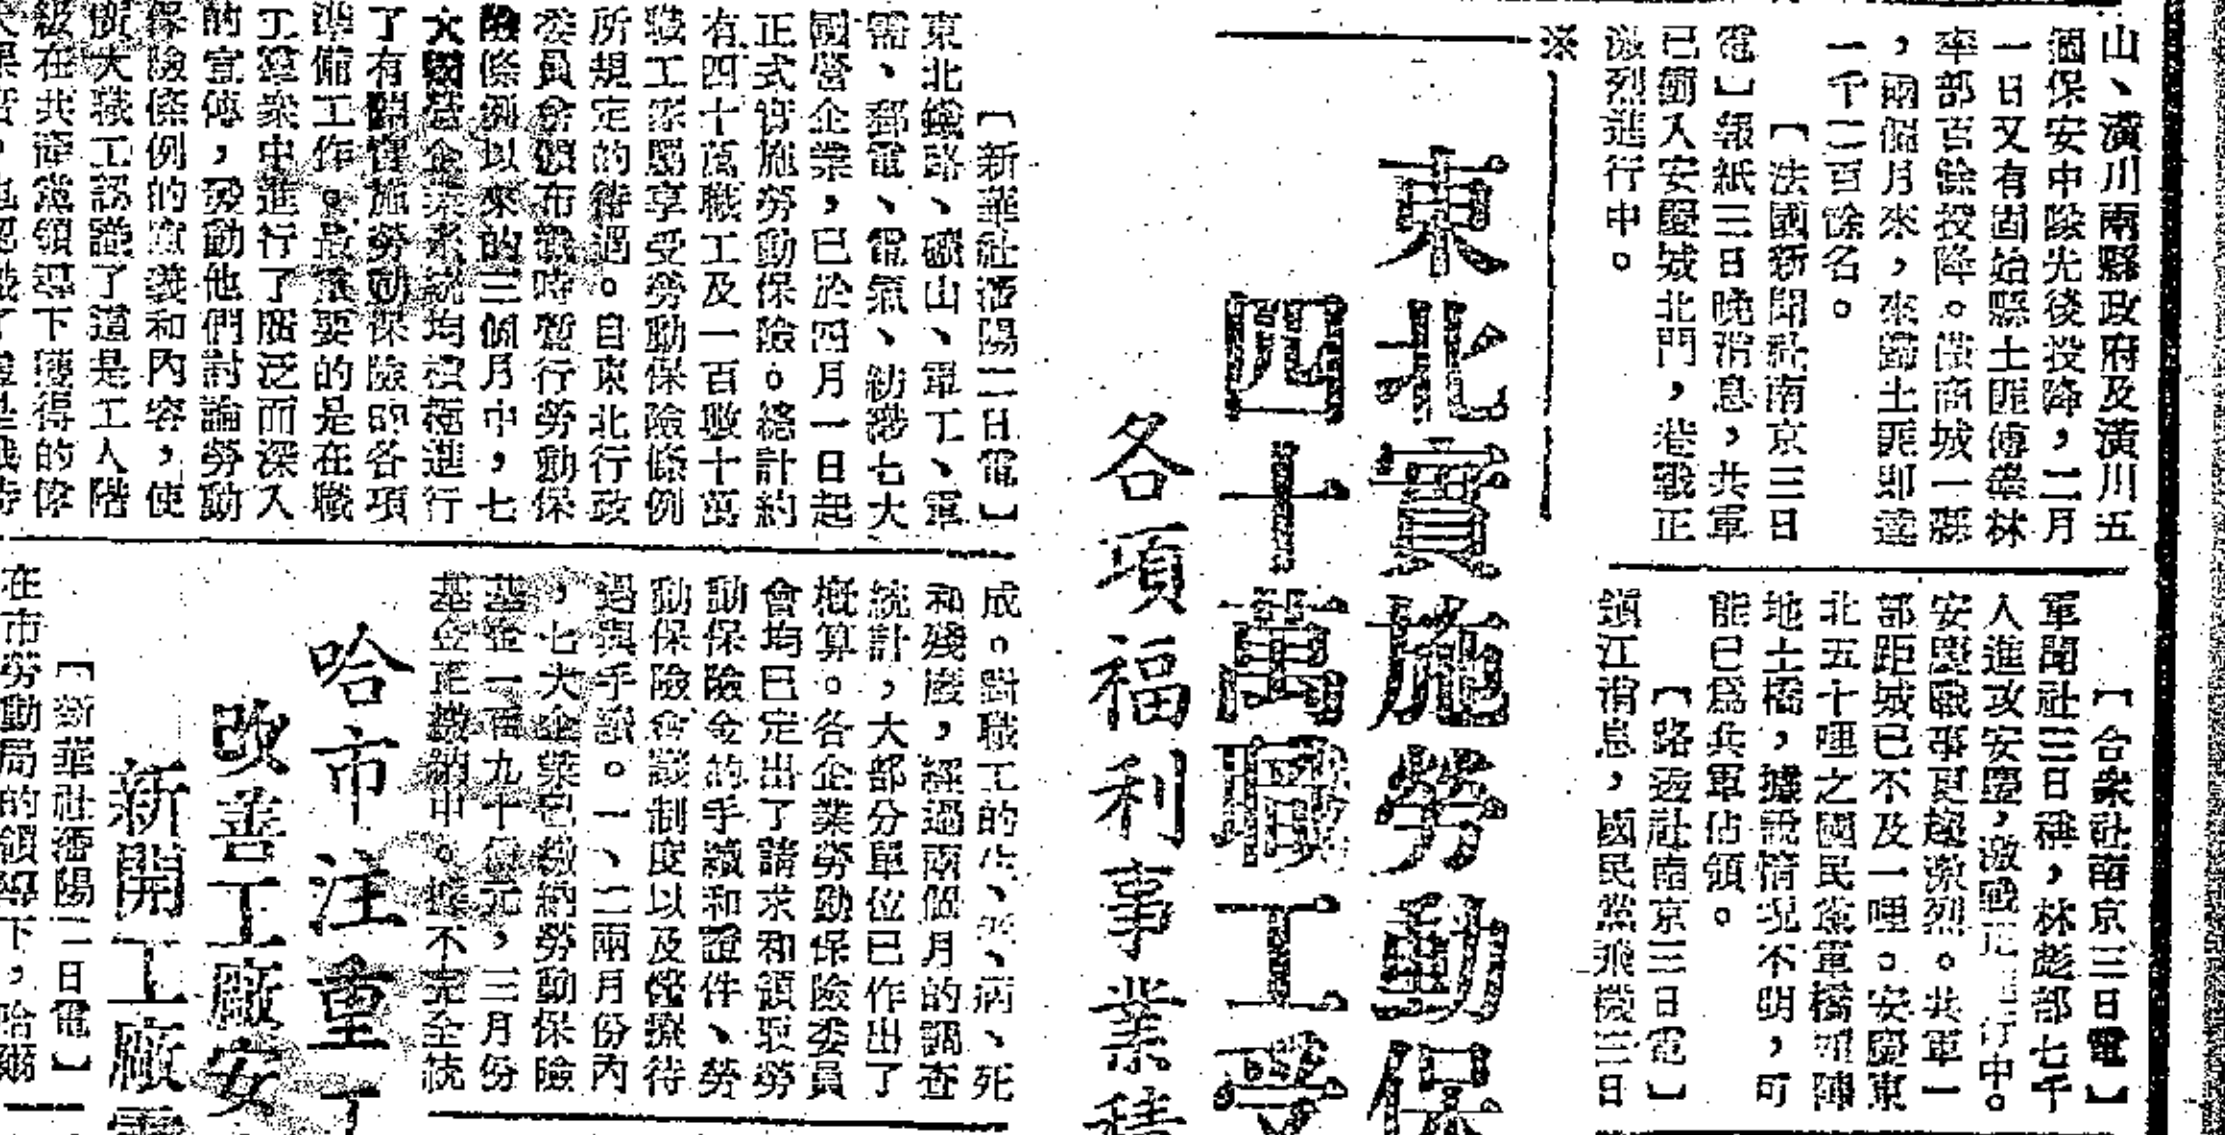 山、潢川兩縣政府及潢川五
個保安中隊先後投降，二月
一日又有固始縣土匪傅 林
率部百餘投降。僅商城一縣
，兩個月來，來歸土匪即達
一千二百餘名。
【法國新聞社南京三日
電】報紙三日晚消息，共軍
已衝入安慶城北門，巷戰正
激烈進行中。
【合衆社南京三日電】
軍聞社三日稱，林彪部七千
人進攻安慶，激戰正 行中。
安慶戰事更趨激烈。共軍一
部距城已不及一哩。安慶東
北五十哩之國民黨軍橋 陣
地土橋，據說情況不明，可
能已爲共軍佔領。
【路透社南京三日電】
鎭江消息，國民黨飛機三日
※
東北實施勞動保
四十萬職工受
各項福利事業積
【新華社瀋陽二日電】
東北鐵路、礦山、軍工、軍
需、郵電、電氣、紡織七大
國營企業，已於四月一日起
正式實施勞動保險。總計約
有四十萬職工及一百數十萬
職工家屬享受勞動保險條例
所規定的待遇。自東北行政
委員會頒布戰時暫行勞動保
險條例以來的三個月中，七
大國營企業系統均積極進行
了有關實施勞動保險的各項
準備工作。最重要的是在職
工羣衆中進行了廣泛而深入
的宣傳，發動他們討論勞動
保險條例的意義和內容，使
廣大職工認識了這是工人階
級在共產黨領導下獲得的偉
大果 ，也認識了這是戰時
成。對職工的生、老、病、死
和殘廢，經過兩個月的調查
統計，大部分單位已作出了
概算。各企業勞動保險委員
會均已定出了請求和領取勞
動保險金的手續和證件、勞
動保險會議制度以及醫療待
遇與手續。一、二兩月份內
，七大企業已繳納勞動保險
基金一百九十億元，三月份
基金正繳納中。據不完全統
哈市注重
改善工廠安
新開工廠
【新華社瀋陽二日電】
在市勞動局的領導下，哈爾